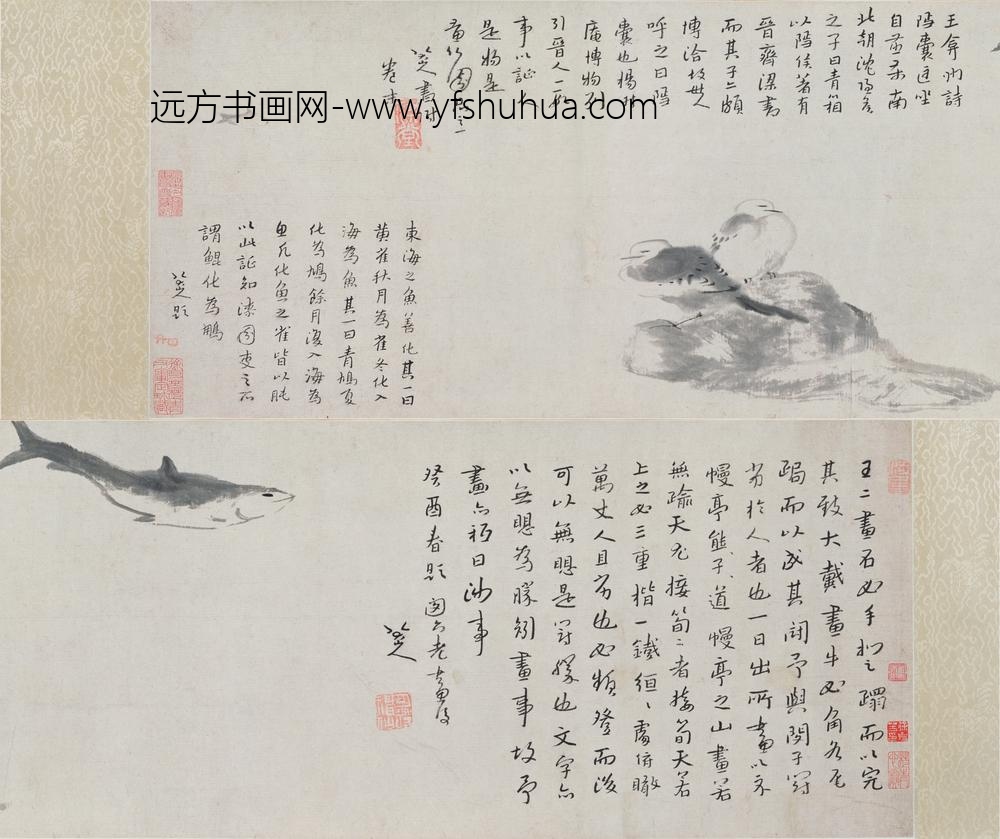 王弇州詩
自首不南
北朝沈隱矦
之子曰青箱
以隱矦著有
晉齊梁書
而其子亦頗
博洽故世人
呼之曰隱
囊也楊升
菴博物引
引晉人一
事以証
是物是
八大
远方书画网-www.yfshuhua.com
東海之魚善化其一曰
黄雀秋月為雀冬化入
海為魚其一曰青鳩夏
化為鳩餘月復入海為
魚凡化魚之雀皆以肫
以此証知漆園吏之所
謂鯤化為鵬
八大題
王二畫石必手捫之蹋而以完
其致大戴畫牛必角為尾
蹋而以成其鬥予與閔子
劣於人者也一日出所畫以示
幔亭熊子道幔亭之山畫若
無踰天尤接筍者接筍天若
上之必三重楷一鐵絙處俯瞰
萬丈人且劣也必頻登而後
可以無聭是冐勝也文字亦
以無聭為勝矧畫事故予
畫亦稱曰涉事
癸酉春題 閔六老書後
八大